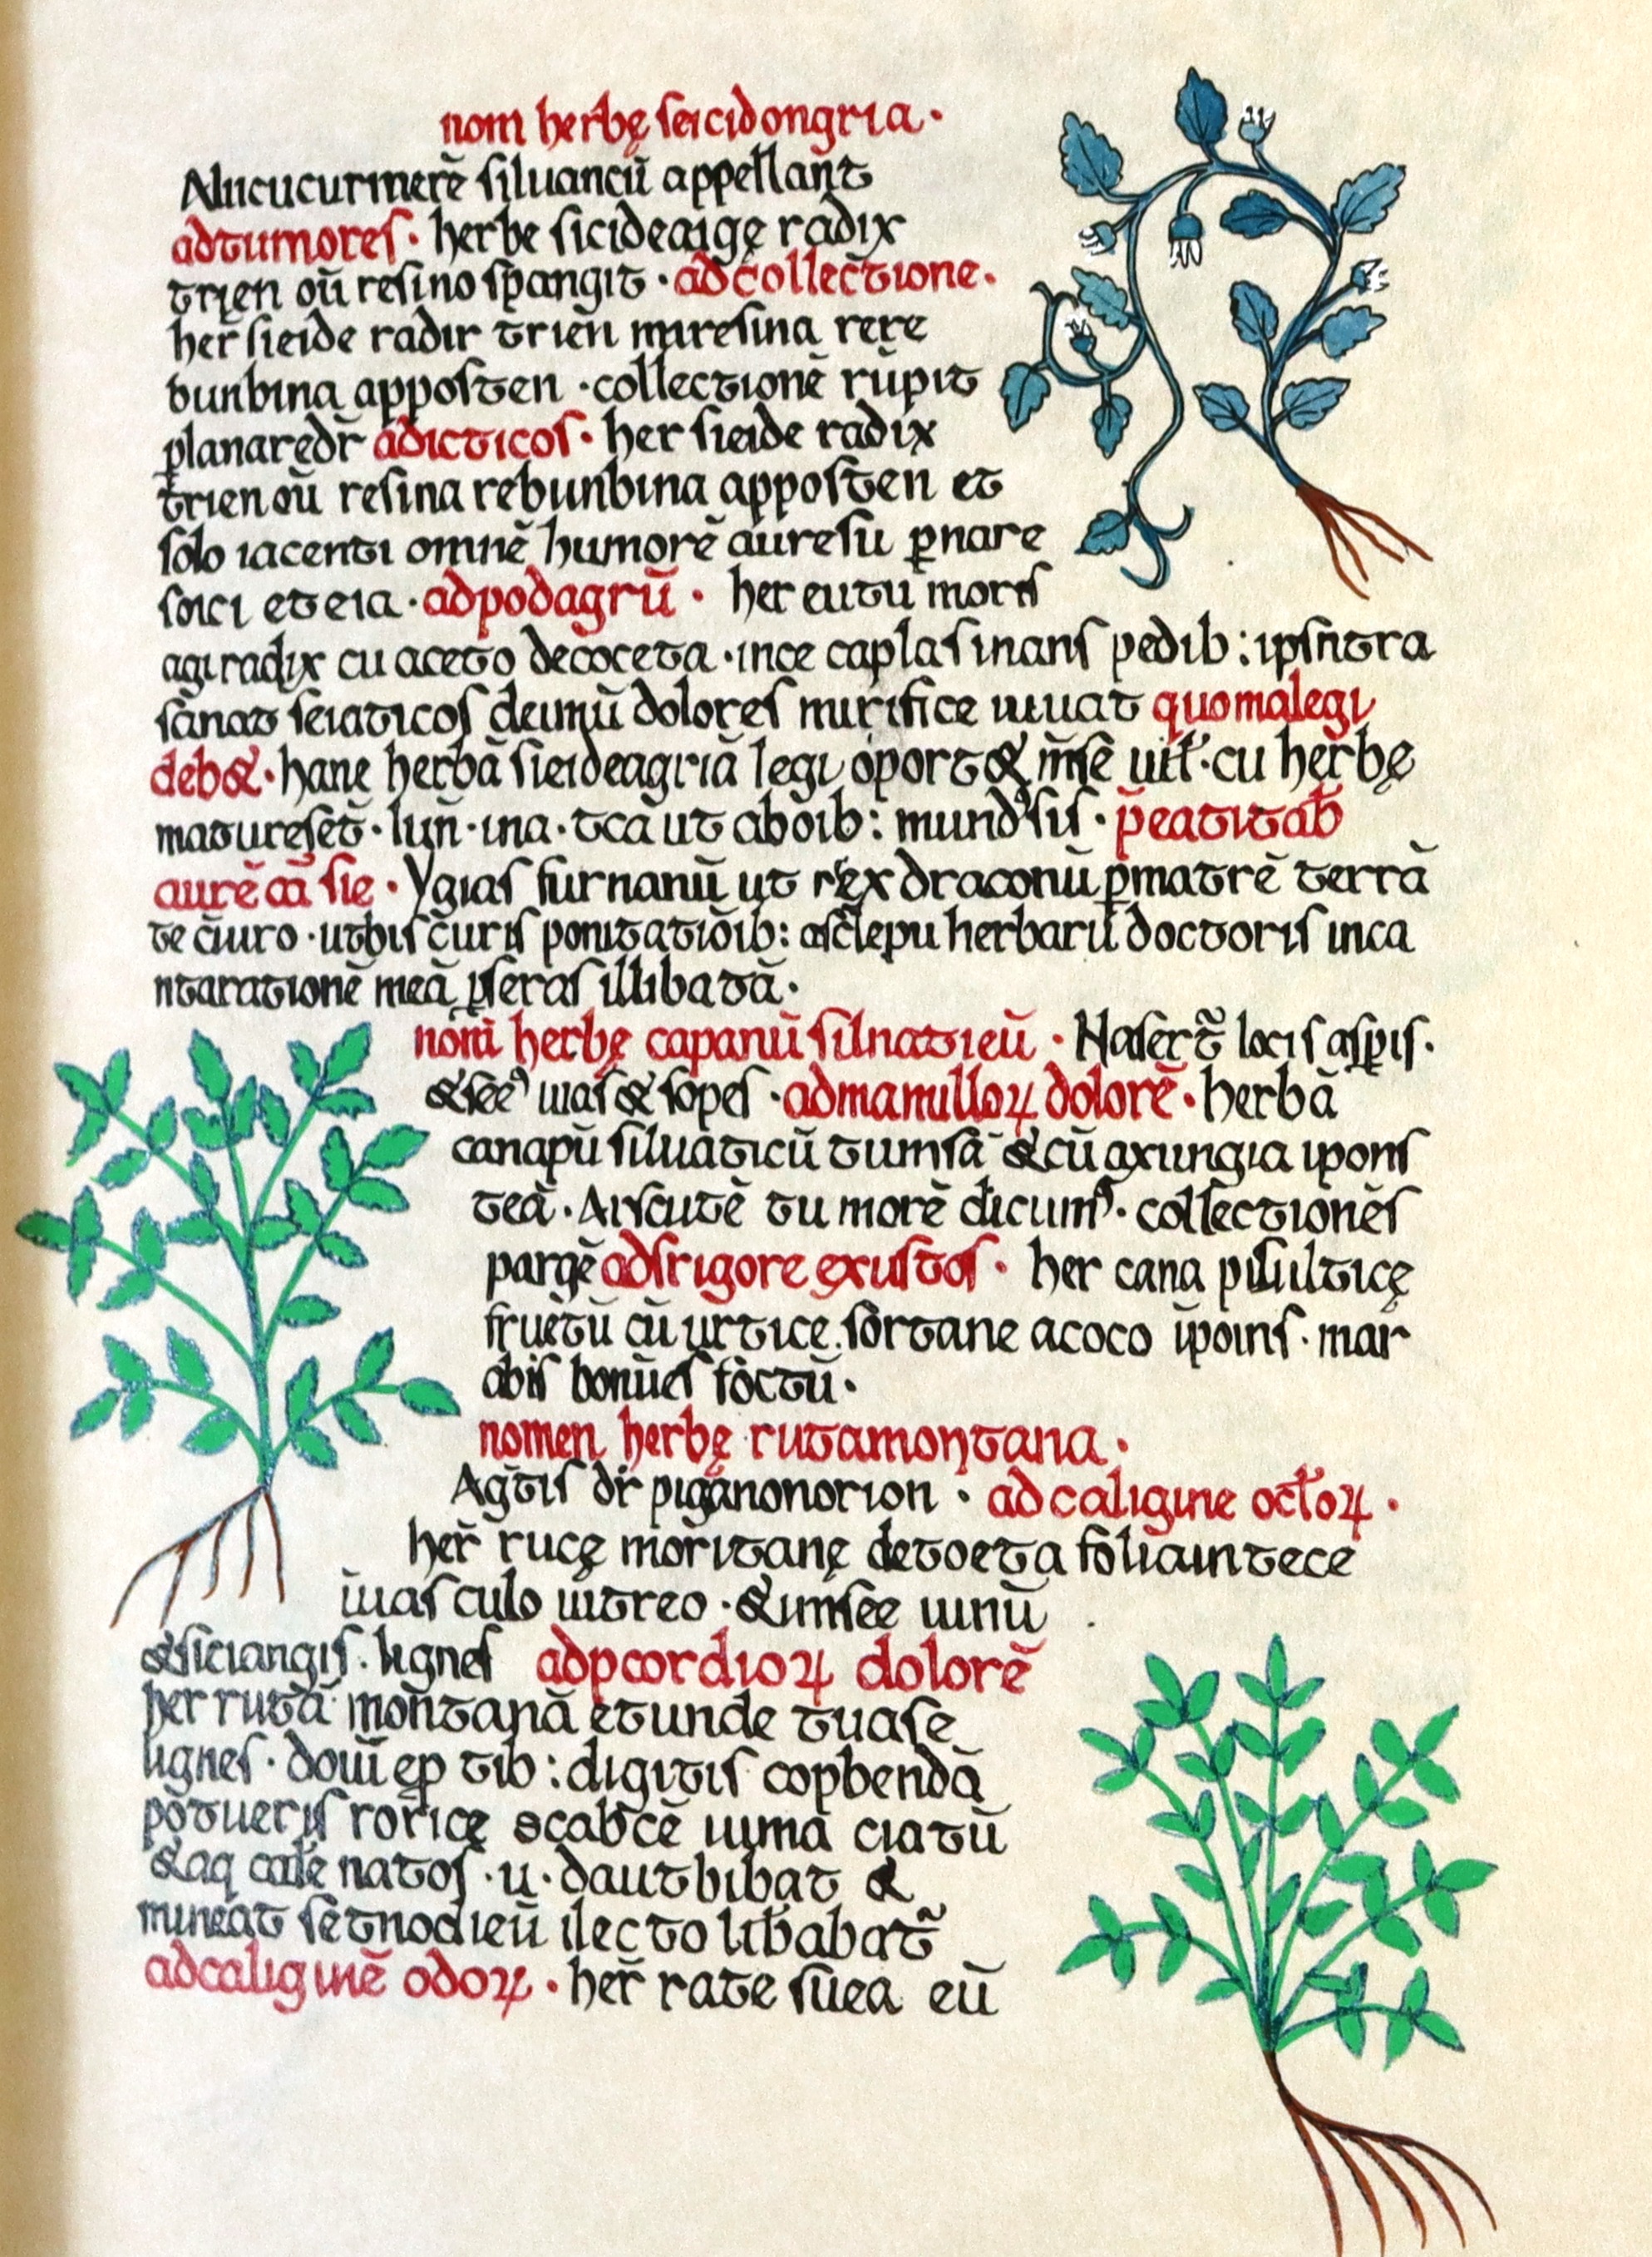 nom herbę seicidongria·
Alııcucurmerē siluancū appellan̄t
adtumores· herbe sicideaıgę radix
trıęn oū resino sꝑangit · adcollec̄tione·
her̄ sieide radir trien̄ mıresina rere
bunbina apposten ·collectionē rūpit
planaredr̄ adicticos· her sieide radix
trien oū resina rebunbina apposten et
solo iacenti omnē humorē auresu ꝑnare
soici et eia · adpodagrū · her eutu moris
agi radix cu aceto decoceta ·ince caplasinans pedib: ipsn̄tra
sanat seiaticos deimū dolores mirifice iuuat quomalegi
deb& · hane herbā sieideagriā legi oport& m̄se uił·cu herbę
maturesēt · lun̄ · ina · tcā ut aboib: mund᾽ sis · p̄eatitab̄
aurē cā sie · Ygias furnanū ut rex draconū ꝑmatrē terrā
te c̄iuro · utbis c̄uris ponitatiōib: asclepu herbarū doctoris inca
ntarationē meā ꝑseras illibatā·
nom̄ herbę capanū silnatieū · Nasert̄ locis asꝑis·
&seē᾽ uias & sopes · admamilloꝝ dolorē · herbā
canapū siluaticū tumsā &cū axungia ipons
teā · Aiscutē tu morē dicum᾽· collectionēs
pargē adfrigore exustos · her cana pisultice
fruētū cū urtice sortane acoco ıp̄oıns · mar
abis bonūes fōctū·
nomen herbę rutamontana·
Agr̄tis dr̄ piganonorion · ad caligine ocłoꝝ ·
her̄ rucę moritanę detoeta foliaintece
ıuasculo uitreo · &misee uinū
&siciangis · lignes adp̄cordioꝝ dolorē
her rutā montanā etunde tuase
lignes · douī eꝑ tib: digitis coꝑbendā
pōtueris rorice scab̄cē uimā ciatū
&aq cale natos · u · dautbibat &
mineat setnodieū ilecto lıb̄abat̄
adcaliginē odoꝝ · her̄ rate sūea eū